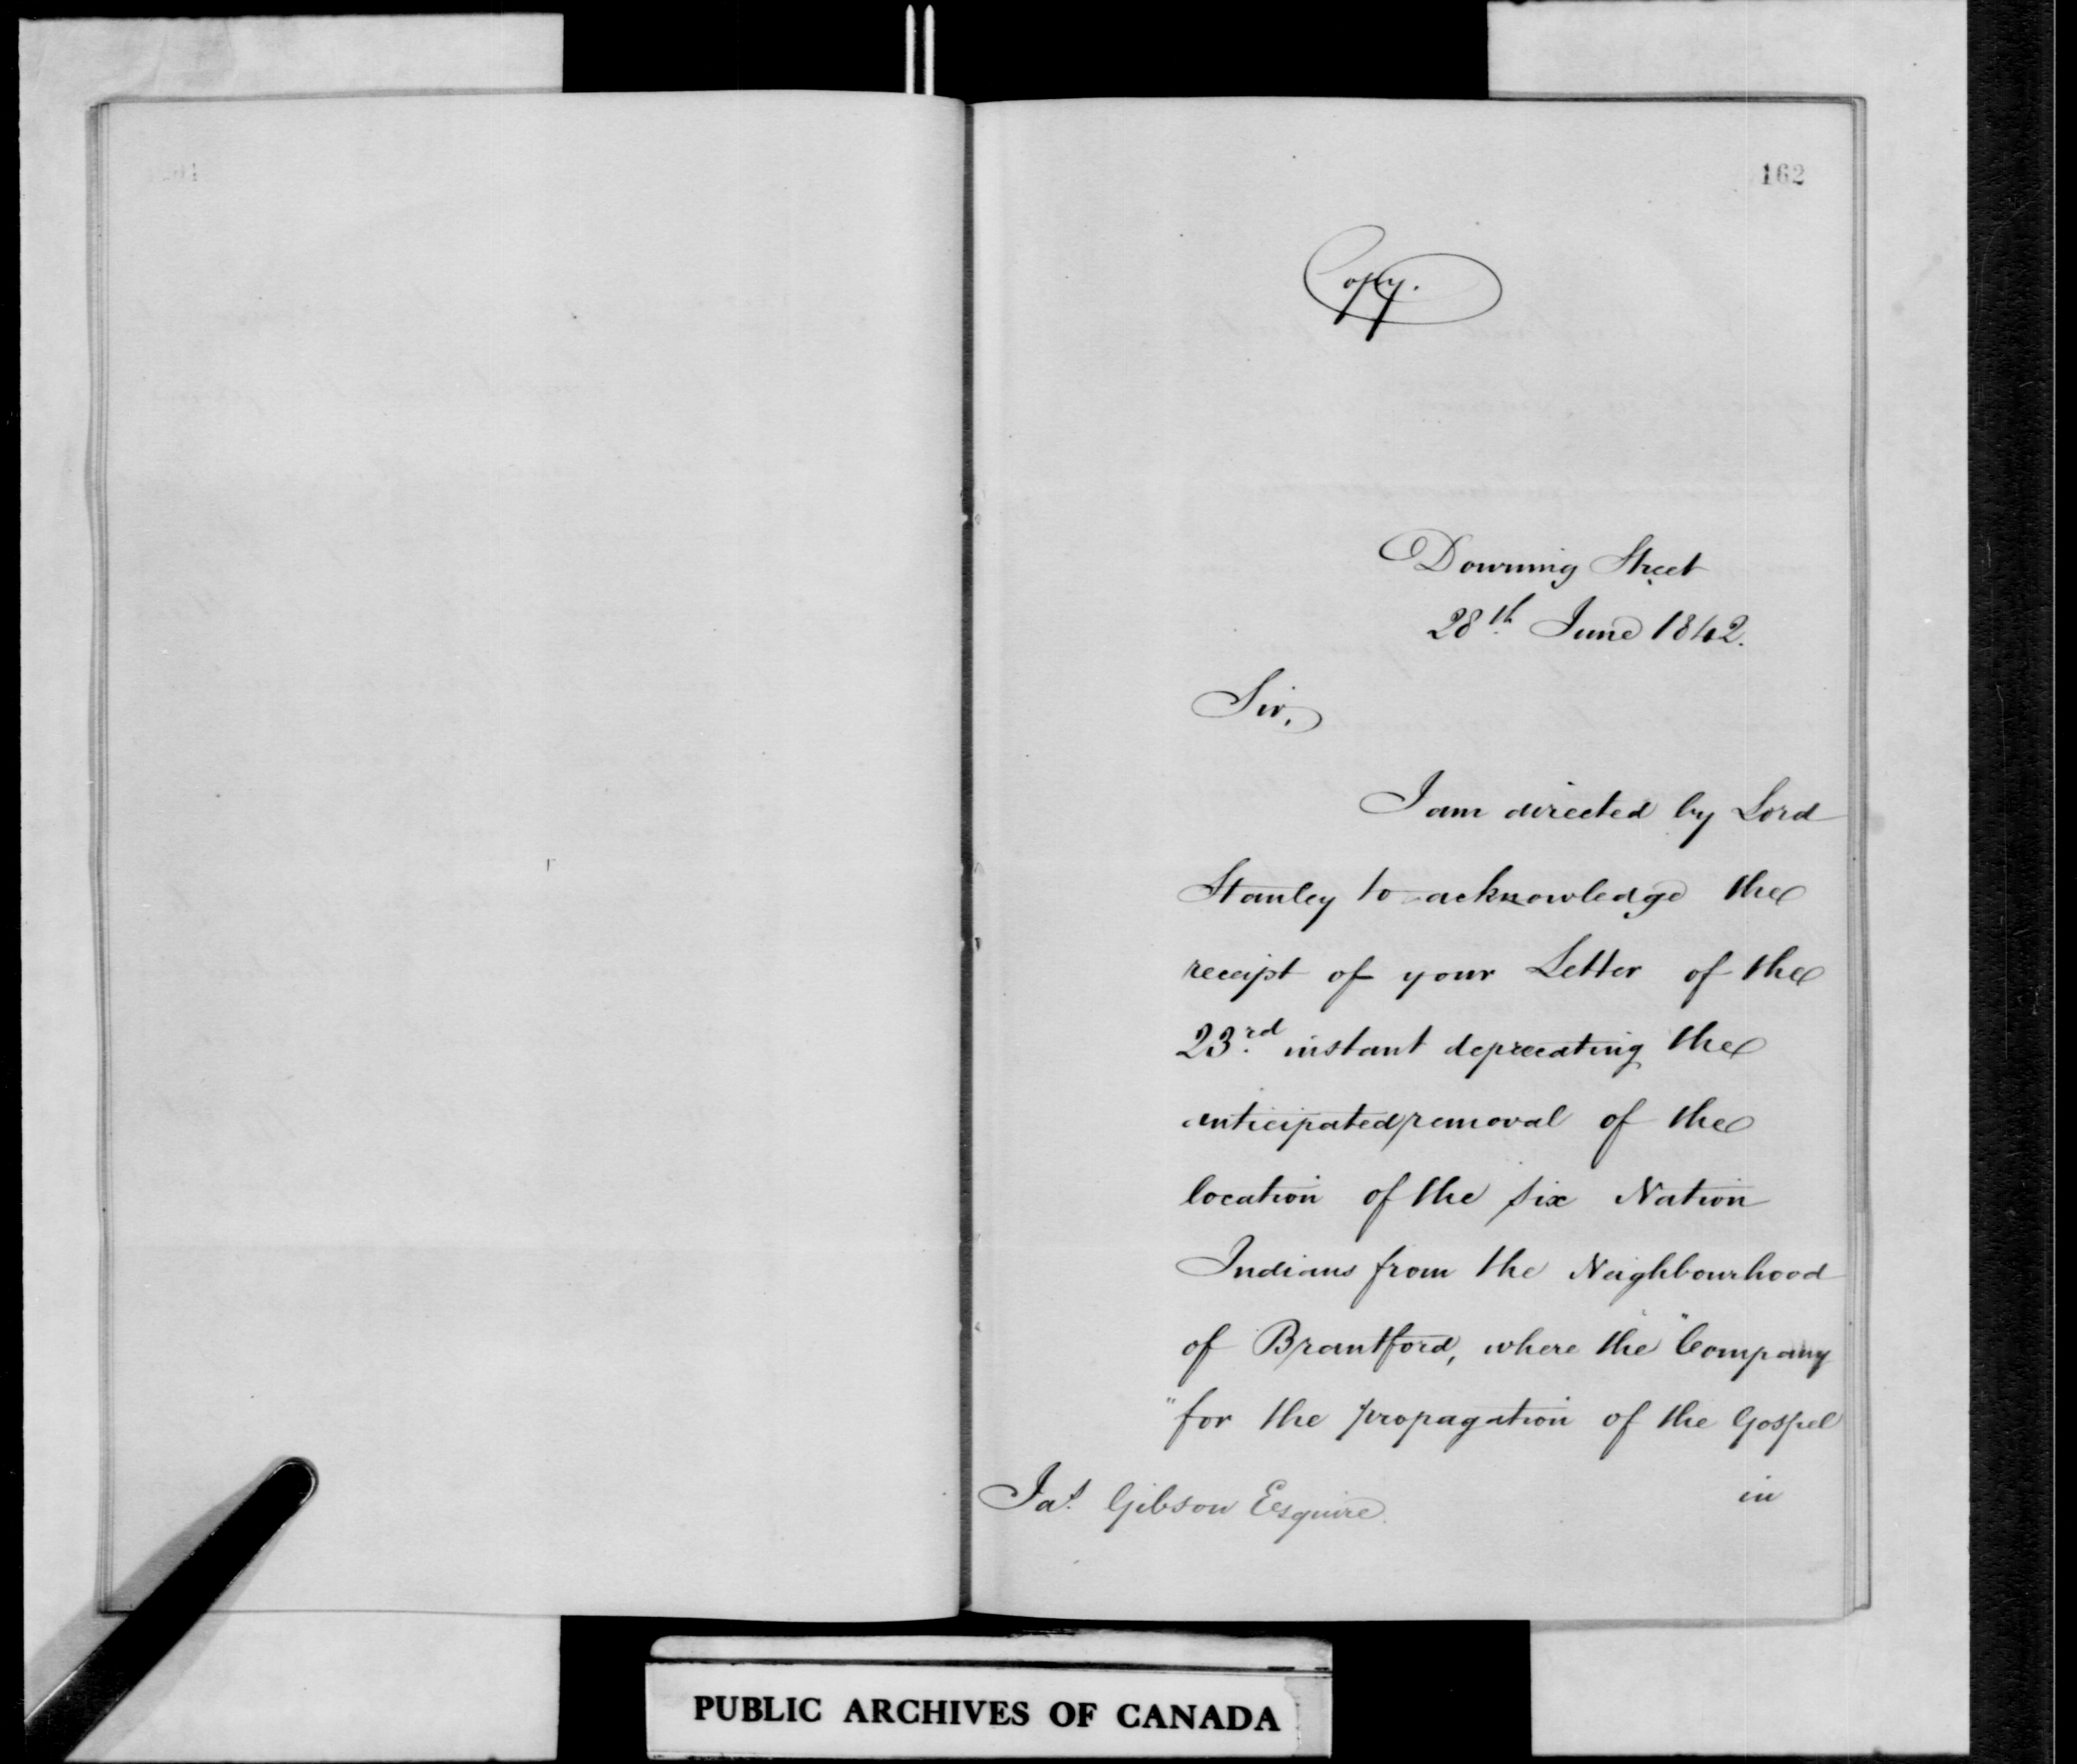 162
Copy.
Downing Street
28th June 1842.
Sir,
I am directed by Lord
Stanley to acknowledge the
receipt of your Letter of the
23rd instant deprecating the
anticipated removal of the
location of the six Nation
Indians from the Neighbourhood
of Brantford, where the "Company
"for the propagation of the Gospel
in
Jas. Gibson Esquire.
PUBLIC ARCHIVES OF CANADA